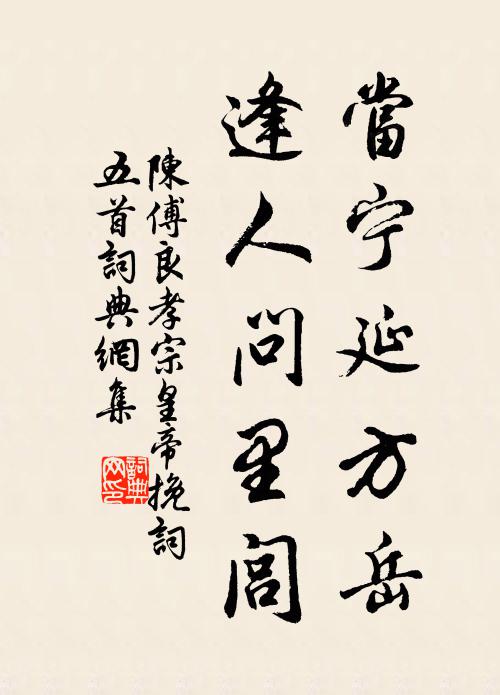 當宁延方岳
逢人問里閭
陳傅良孝宗皇帝挽詞
五首詞典網集
詞典
网印